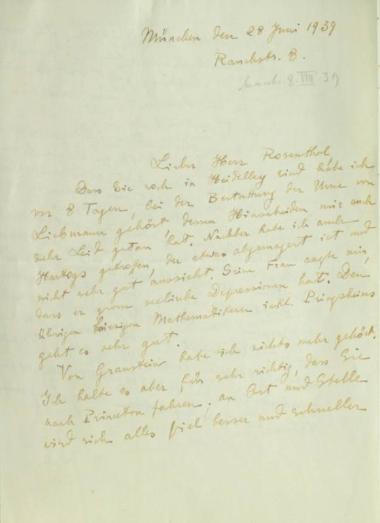 München den 28 Juni 1939
Rauchstr. 8.
beantw. 8. VIII 39
Lieber Herr Rosenthal,
Dass Sie noch in Heidelberg sind habe ich
vor 8 Tagen, bei der Bestattung der Urne von
Liebmann gehört dessen Hinscheiden mir auch
sehr Leid getan hat. Nachher habe ich auch
Hartogs getroffen, der etwas abgemagert ist und
nicht sehr gut aussieht. Seine Frau sagte mir,
dass er grosse seelische Depressionen hat. Den
übrigen hiesigen Mathematikern inkl. Pringsheim
geht es sehr gut.
Von Graustein habe ich nichts mehr gehört.
Ich halte es aber für sehr richtig, dass Sie
nach Princeton fahren; an Ort und Stelle
wird sich alles viel besser und schneller